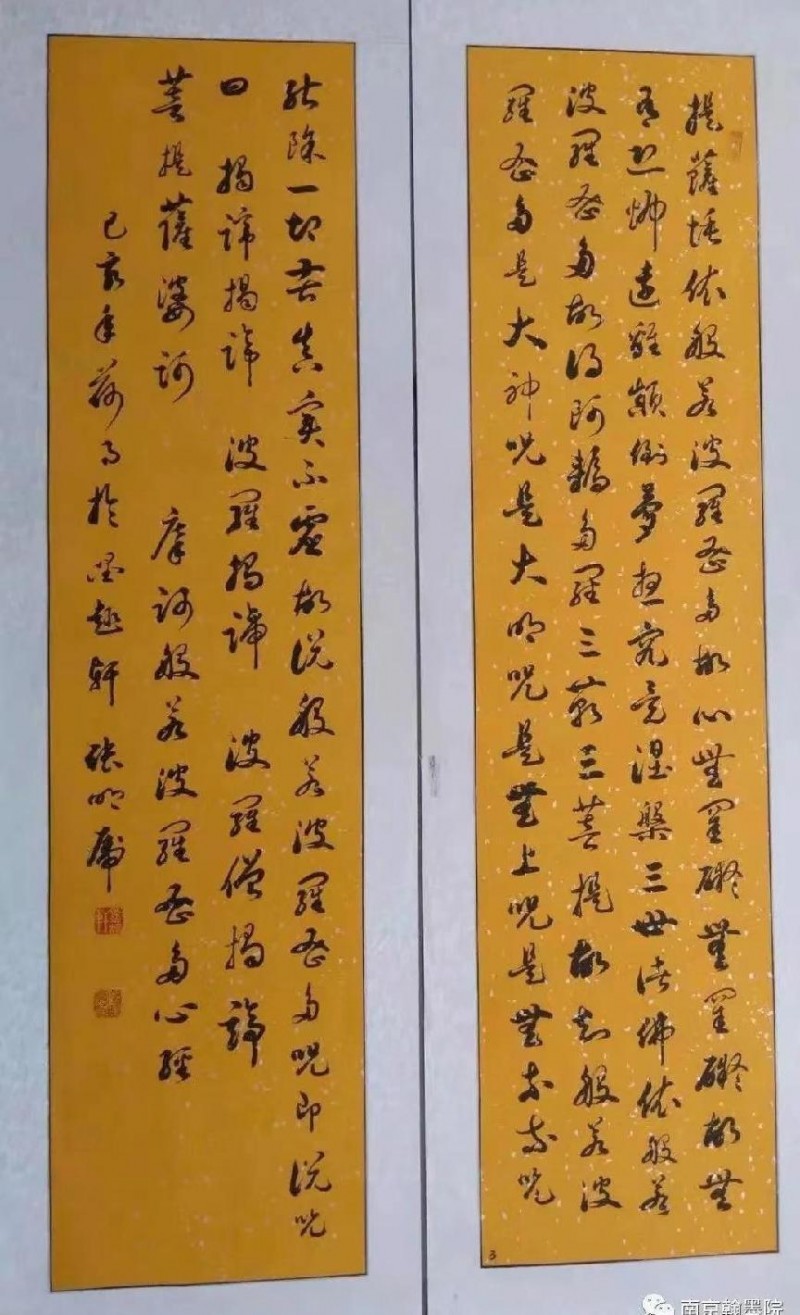 提薩埵依般若波羅蜜多故心無罣礙無罣礙故無
有恐怖遠離顛倒夢想究竟涅槃三世諸佛依般若
波羅蜜多故得阿耨多羅三藐三菩提故知般若波
羅蜜多是大神呪是大明呪是無上呪是無等等呪
3
能除一切苦真實不虛故說般若波羅蜜多呪即說呪
曰 揭諦揭諦 波羅揭諦 波羅僧揭諦
菩提薩婆訶 摩訶般若波羅蜜多心經
己亥年荷月於墨趣軒 張明
南京翰墨院